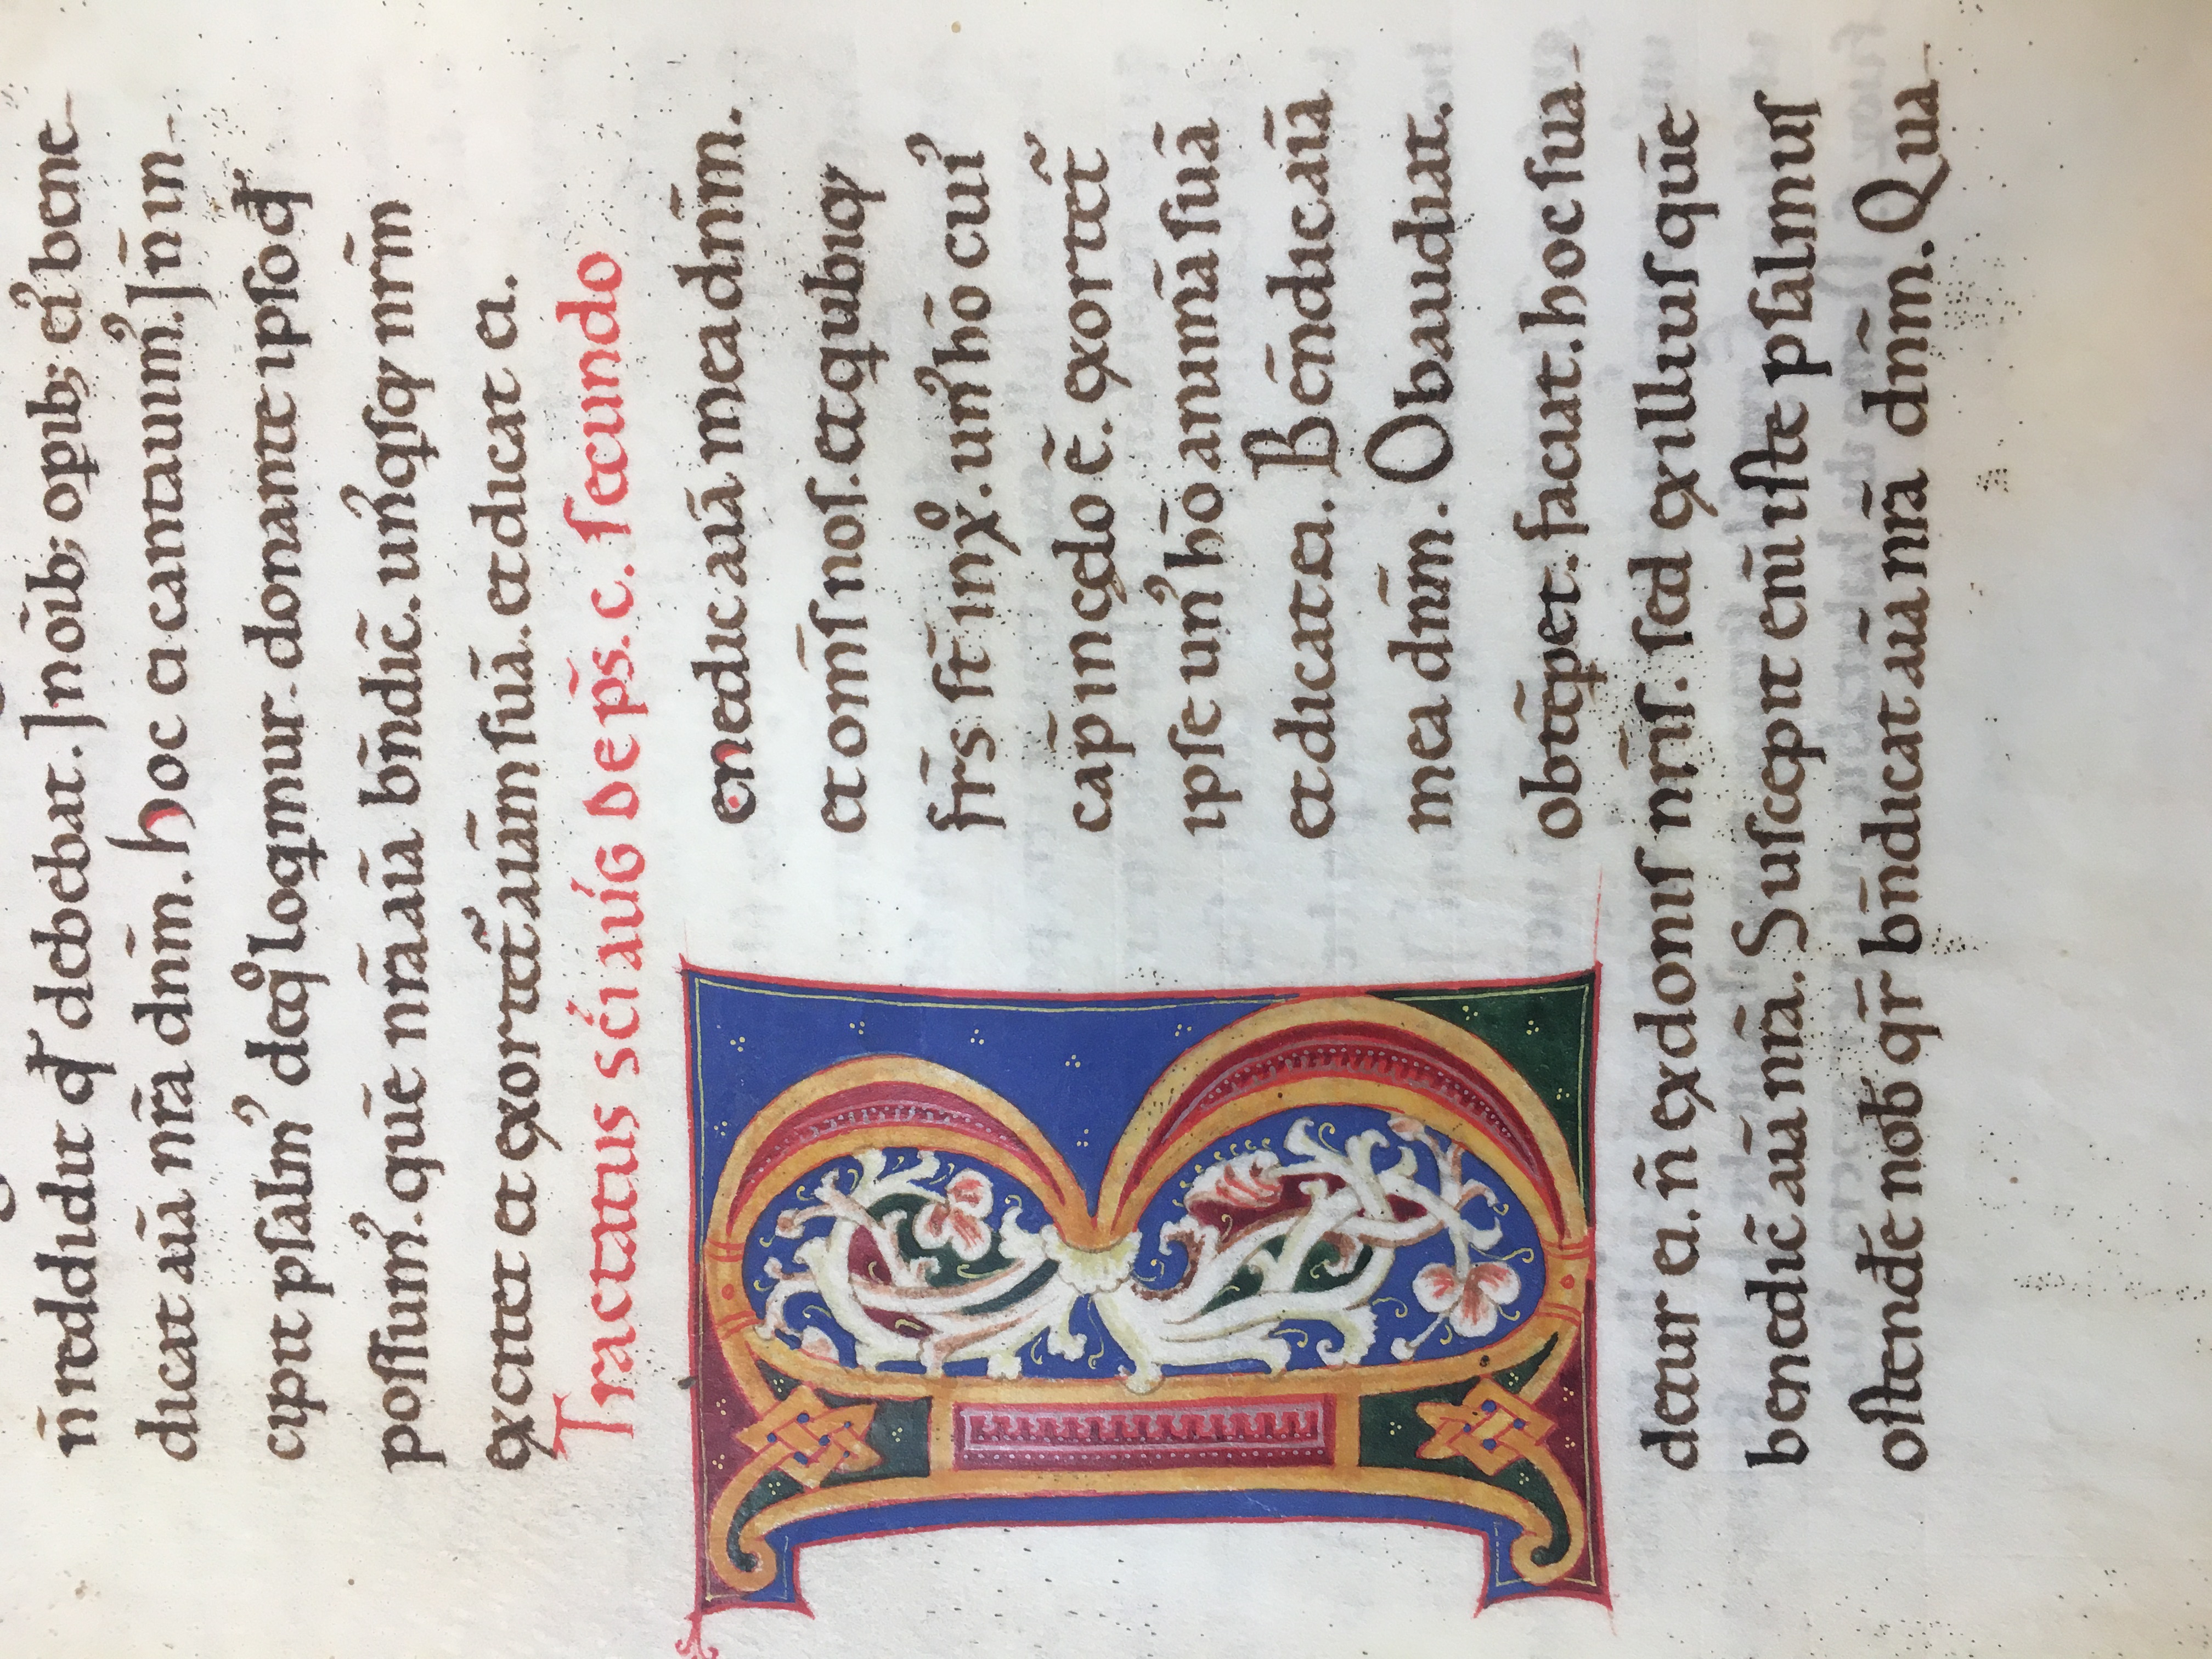 n̄ reddidit qđ debebat. In oīb; opib; ei᾿ bene-
dicat aīa nr̄a dnm̄. hoc ei cantauim᾿. In̄ in-
cipit psalm᾿ de qͦ loqmur. donante ipso qđ
possum᾿. quē nr̄a aīa bn̄dic̄. un᾿qsq; nrm̄
excitet et exortet᾿ aīam̄ suā. et dicat ei.
Tractatus sc̄i aug de ps̄. c. secundo
Benedic aīa mea dnm̄.
et om̄s nos. et qubiq;
fr̄s st̄ in xͦ. un᾿ hō cui᾿
cap̄ in cęlo ē. exortet᾿
ipse un᾿ hō animā suā
et dicat ei. Bēndic aīa
mea dnm̄. Obaudiat.
obtēpet. faciat. hoc sua-
deatur ei. n̄ ex donis nr̄is. sed ex illius quē
benedic̄ aīa nr̄a. Suscepit eni iste psalmus
ostendē nob qr bn̄dicat aīa nr̄a dnm̄. Qua-